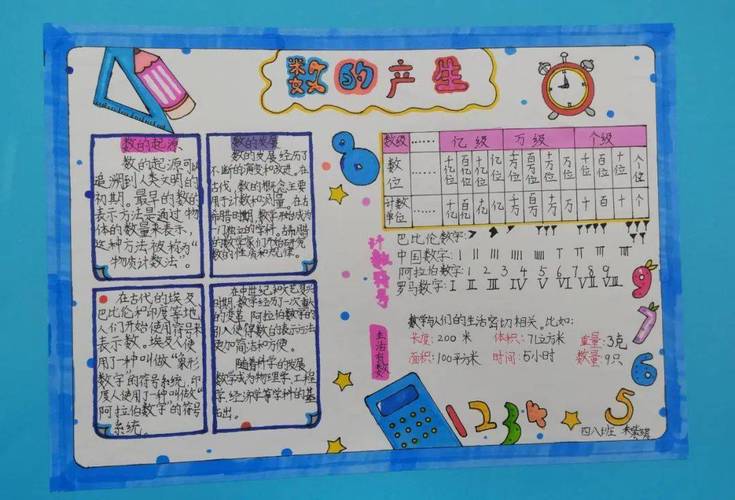 数的产生
数的起源
数的起源可以
追溯到人类文明的
初期。最早的数的
表示方法是通过物
体的数量来表示，
这种方法被称为“
物质计数法”。
数的发展
数的发展经历了
不断的演变和改进。在
古代，数的概念主要
用于计数和测量。在古
希腊时期，数学开始成为
一门独立的学科。古希腊
的数学家们开始研究
数的性质和规律。
在古代的埃及
巴比伦和印度等地，
人们开始使用符号来
表示数。埃及人使
用了一种叫做“象形
数字”的符号系统，印
度人使用了一种叫做“
阿拉伯数字”的符号
系统。
在中世纪和文艺复兴
时期，数学经历了一次重大
的变革。阿拉伯数字的
引入使得数的表示方法
更加简洁和方便。
随着科学的发展
数学成为物理学、工程
学、经济学等学科的基
础出。
数级 …… 亿级 万级 个级
数位 …… 千亿位 百亿位 十亿位 亿位 千万位 百万位 十万位 万位 千位 百位 十位 个位
计数单位 …… 千亿 百亿 十亿 亿 千万 百万 十万 万 千 百 十 个
计数符号
巴比伦数字:
中国数字:
阿拉伯数字: 1 2 3 4 5 6 7 8 9
罗马数字: Ⅰ Ⅱ Ⅲ Ⅳ Ⅴ Ⅵ Ⅶ Ⅷ Ⅸ
生活有数
数学与人们的生活密切相关。比如:
长度: 200 米 体积: 71立方米 重量: 3克
面积: 100平方米 时间: 5小时 数量: 9只
8
9
7
6
5
1 2 3 4
四八班